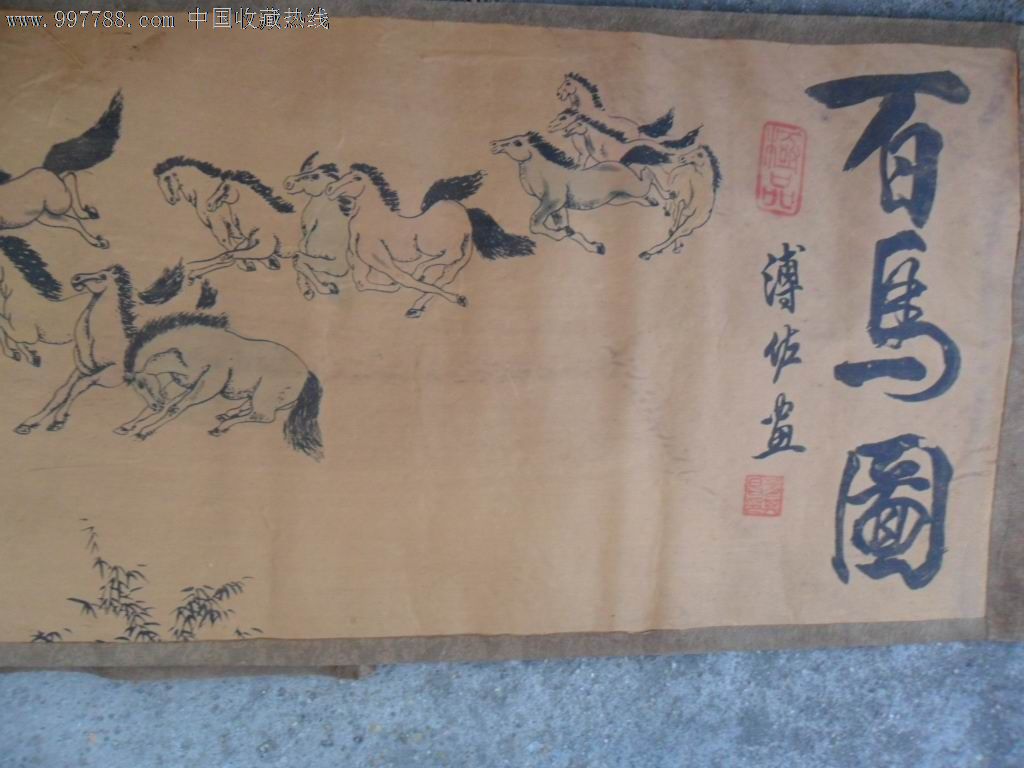 www.997788.com 中国收藏热线
百馬圖
極品
溥佐画